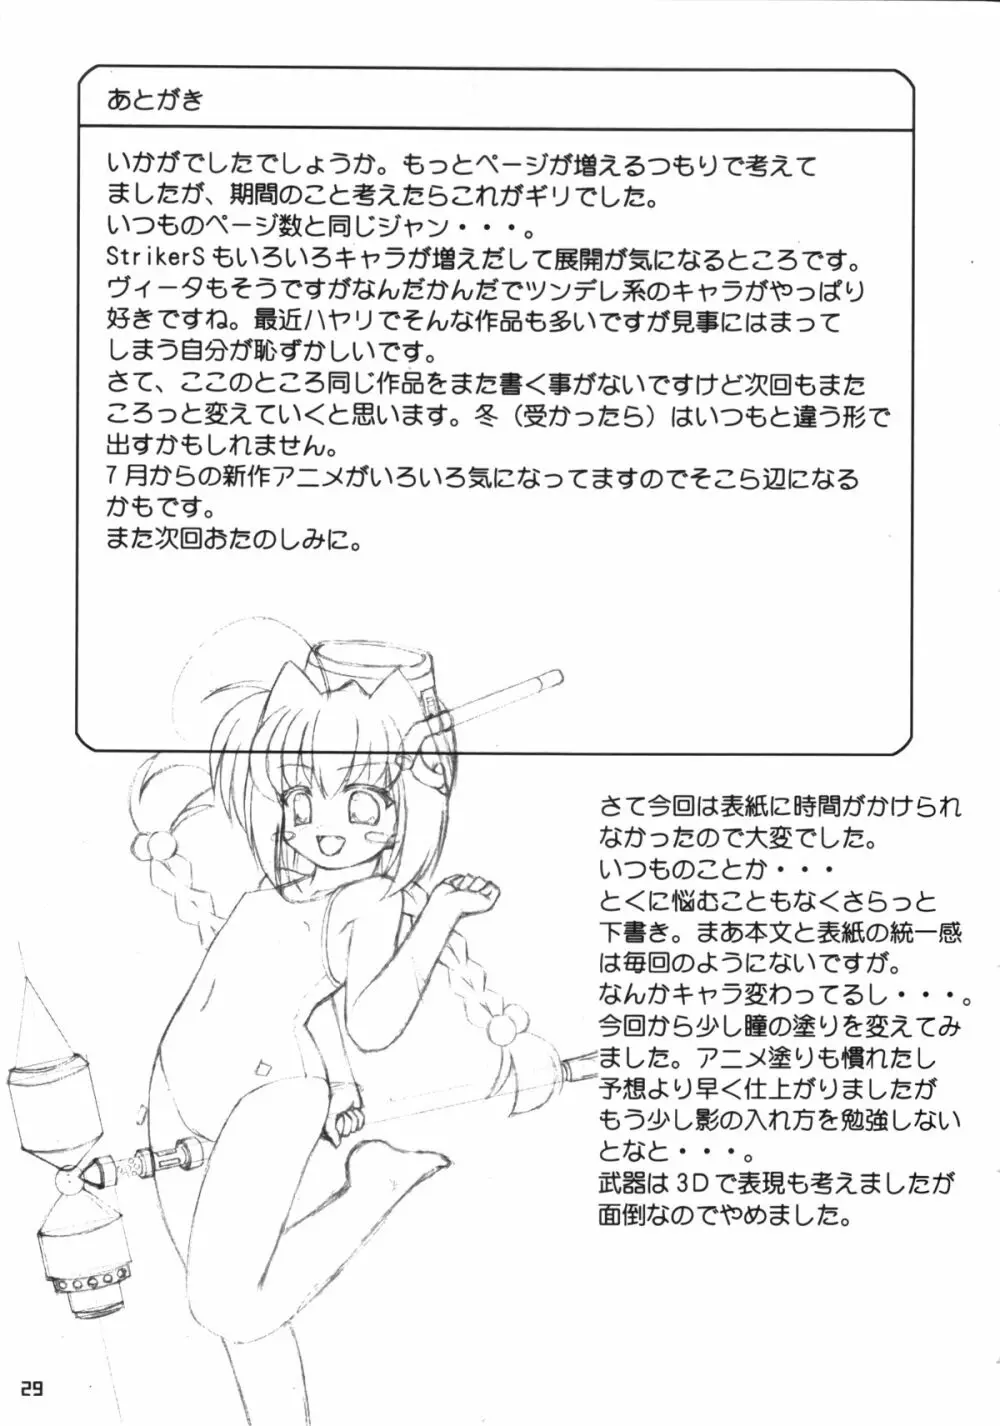 あとがき
いかがでしたでしょうか。もっとページが増えるつもりで考えて
ましたが、期間のこと考えたらこれがギリでした。
いつものページ数と同じジャン・・・。
StrikerSもいろいろキャラが増えだして展開が気になるところです。
ヴィータもそうですがなんだかんだでツンデレ系のキャラがやっぱり
好きですね。最近ハヤリでそんな作品も多いですが見事にはまって
しまう自分が恥ずかしいです。
さて、ここのところ同じ作品をまた書く事がないですけど次回もまた
ころっと変えていくと思います。冬（受かったら）はいつもと違う形で
出すかもしれません。
7月からの新作アニメがいろいろ気になってますのでそこら辺になる
かもです。
また次回おたのしみに。
さて今回は表紙に時間がかけられ
なかったので大変でした。
いつものことか・・・
とくに悩むこともなくさらっと
下書き。まあ本文と表紙の統一感
は毎回のようにないですが。
なんかキャラ変わってるし・・・。
今回から少し瞳の塗りを変えてみ
ました。アニメ塗りも慣れたし
予想より早く仕上がりましたが
もう少し影の入れ方を勉強しない
となと・・・。
武器は3Dで表現も考えましたが
面倒なのでやめました。
29